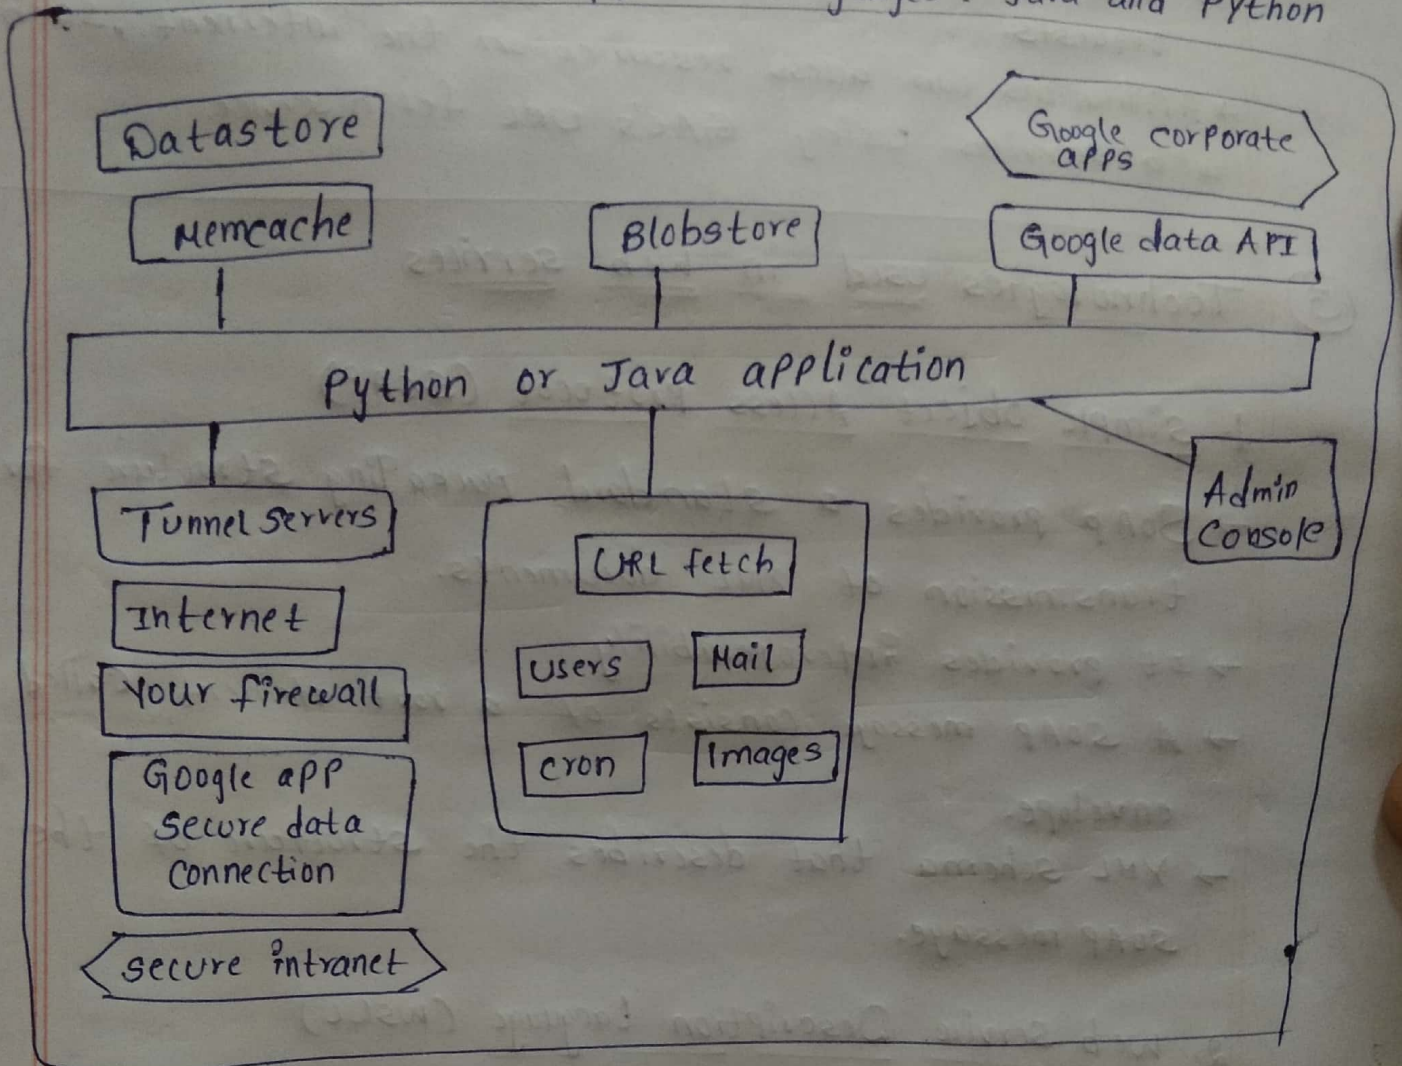 Java and Python
Datastore
Memcache
Blobstore
Google corporate
apps
Google data API
Python or Java application
Tunnel servers
Internet
Your firewall
Google app
secure data
connection
secure intranet
URL fetch
Users
Mail
cron
Images
Admin
Console